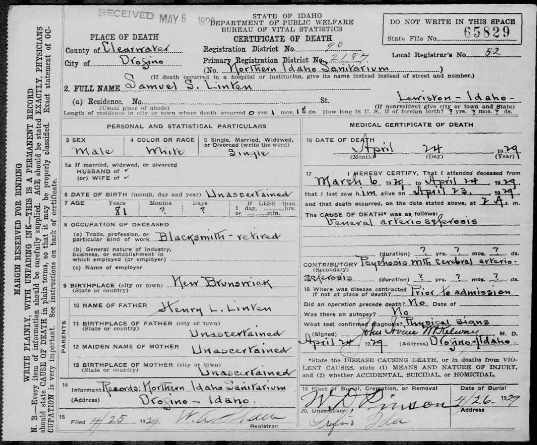 RECEIVED MAY 6 1929
STATE OF IDAHO
DEPARTMENT OF PUBLIC WELFARE
BUREAU OF VITAL STATISTICS
CERTIFICATE OF DEATH
DO NOT WRITE IN THIS SPACE
State File No. 65829
PLACE OF DEATH
County of Clearwater
City of Orofino
Registration District No. 90
Primary Registration District No. 2187
Local Registrar's No. 52
(No. Northern Idaho Sanitarium)
(If death occurred in a hospital or institution, give its name instead of street and number.)
2. FULL NAME Samuel S. Linten
(a) Residence. No. St. Lewiston - Idaho.
(Usual place of abode) (If nonresident give city or town and State)
Length of residence in city or town where death occurred 0 yrs 1 mos. 18 ds. How long in U. S., if of foreign birth? ? yrs. ? mos. ? ds.
PERSONAL AND STATISTICAL PARTICULARS
3 SEX Male
4 COLOR OR RACE White
5 Single, Married, Widowed, or Divorced (write the word) Single
5a If married, widowed, or divorced
HUSBAND of
(or) WIFE of
6 DATE OF BIRTH (month, day and year) Unascertained
7 AGE Years 81 Months ? Days ? If LESS than 1 day, hrs. or min.
8 OCCUPATION OF DECEASED
(a) Trade, profession, or particular kind of work Blacksmith - retired
(b) General nature of industry, business, or establishment in which employed (or employer)
(c) Name of employer
9 BIRTHPLACE (city or town) New Brunswick
(State or country)
PARENTS
10 NAME OF FATHER Henry L. Linten
11 BIRTHPLACE OF FATHER (city or town)
(State or country) Unascertained
12 MAIDEN NAME OF MOTHER Unascertained
13 BIRTHPLACE OF MOTHER (city or town)
(State or country) Unascertained
14 Informant Records, Northern Idaho Sanitarium
Orofino - Idaho.
15 Filed 4/25, 1929
Registrar
MEDICAL CERTIFICATE OF DEATH
16 DATE OF DEATH April 24 1929
(Month) (Day) (Year)
17 I HEREBY CERTIFY, That I attended deceased from
March 6 1929 to April 24 1929
that I last saw him alive on April 23, 1929
and that death occurred, on the date stated above, at 7 A. m.
The CAUSE OF DEATH was as follows:
General arteriosclerosis
(duration) ? yrs. ? mos. ? ds.
CONTRIBUTORY Psychosis with cerebral arterio-
(Secondary)
sclerosis (duration) ? yrs. ? mos. ? ds.
18 Where was disease contracted if not at place of death? Prior to admission
Did an operation precede death? No Date of
Was there an autopsy? No
What test confirmed diagnosis? Physical signs
(Signed) M. D.
April 24, 1929 (Address) Orofino - Idaho.
*State the DISEASE CAUSING DEATH, or in deaths from VIOLENT CAUSES, state (1) MEANS AND NATURE OF INJURY, and (2) whether ACCIDENTAL, SUICIDAL, or HOMICIDAL.
19 Place of Burial, Cremation, or Removal Date of Burial
4/26 1929
20 Undertaker Address
MARGIN RESERVED FOR BINDING
WRITE PLAINLY, WITH UNFADING INK—THIS IS A PERMANENT RECORD
N. B.—Every item of information should be carefully supplied. AGE should be stated EXACTLY. PHYSICIANS
should state CAUSE OF DEATH in plain terms, so that it may be properly classified. Exact statement of OC-
CUPATION is very important. See instructions on back of certificate.